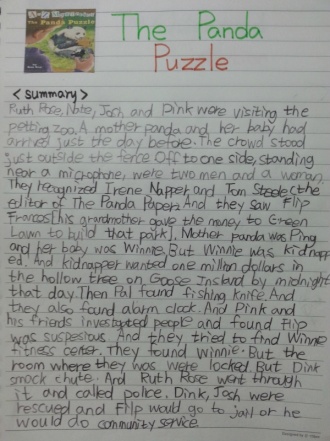 A to Z Mysteries
The Panda Puzzle
The Panda
Puzzle
<summary>
Ruth Rose, Nate, Josh and Dink were visiting the
petting zoo. A mother panda and her baby had
arrived just the day before. The crowd stood
just outside the fence Off to one side, standing
near a microphone, were two men and a woman.
They recognized Irene Napper and Tom Steele(the
editor of The Panda Paper. And they saw Flip
Francos[his grandmother gave the money to Green
Lawn to build that park]. Mother panda was Ping
and her baby was Winnie. But Winnie was kidnapp
ed. And kidnapper wanted one million dollars in
the hollow tree on Goose Insland by midnight
that day. Then Pal found fishing knife. And
they also found alarm clock. And Pink and
his friends investgated people and found Flip
was suspesious. And they tried to find Winnie
fitness center. They found Winnie. But the
room where they was were locked But Dink
smock chute. And Ruth Rose went through
it and called police. Dink, Josh were
rescued and Flip would go to jail or he
would do community service.